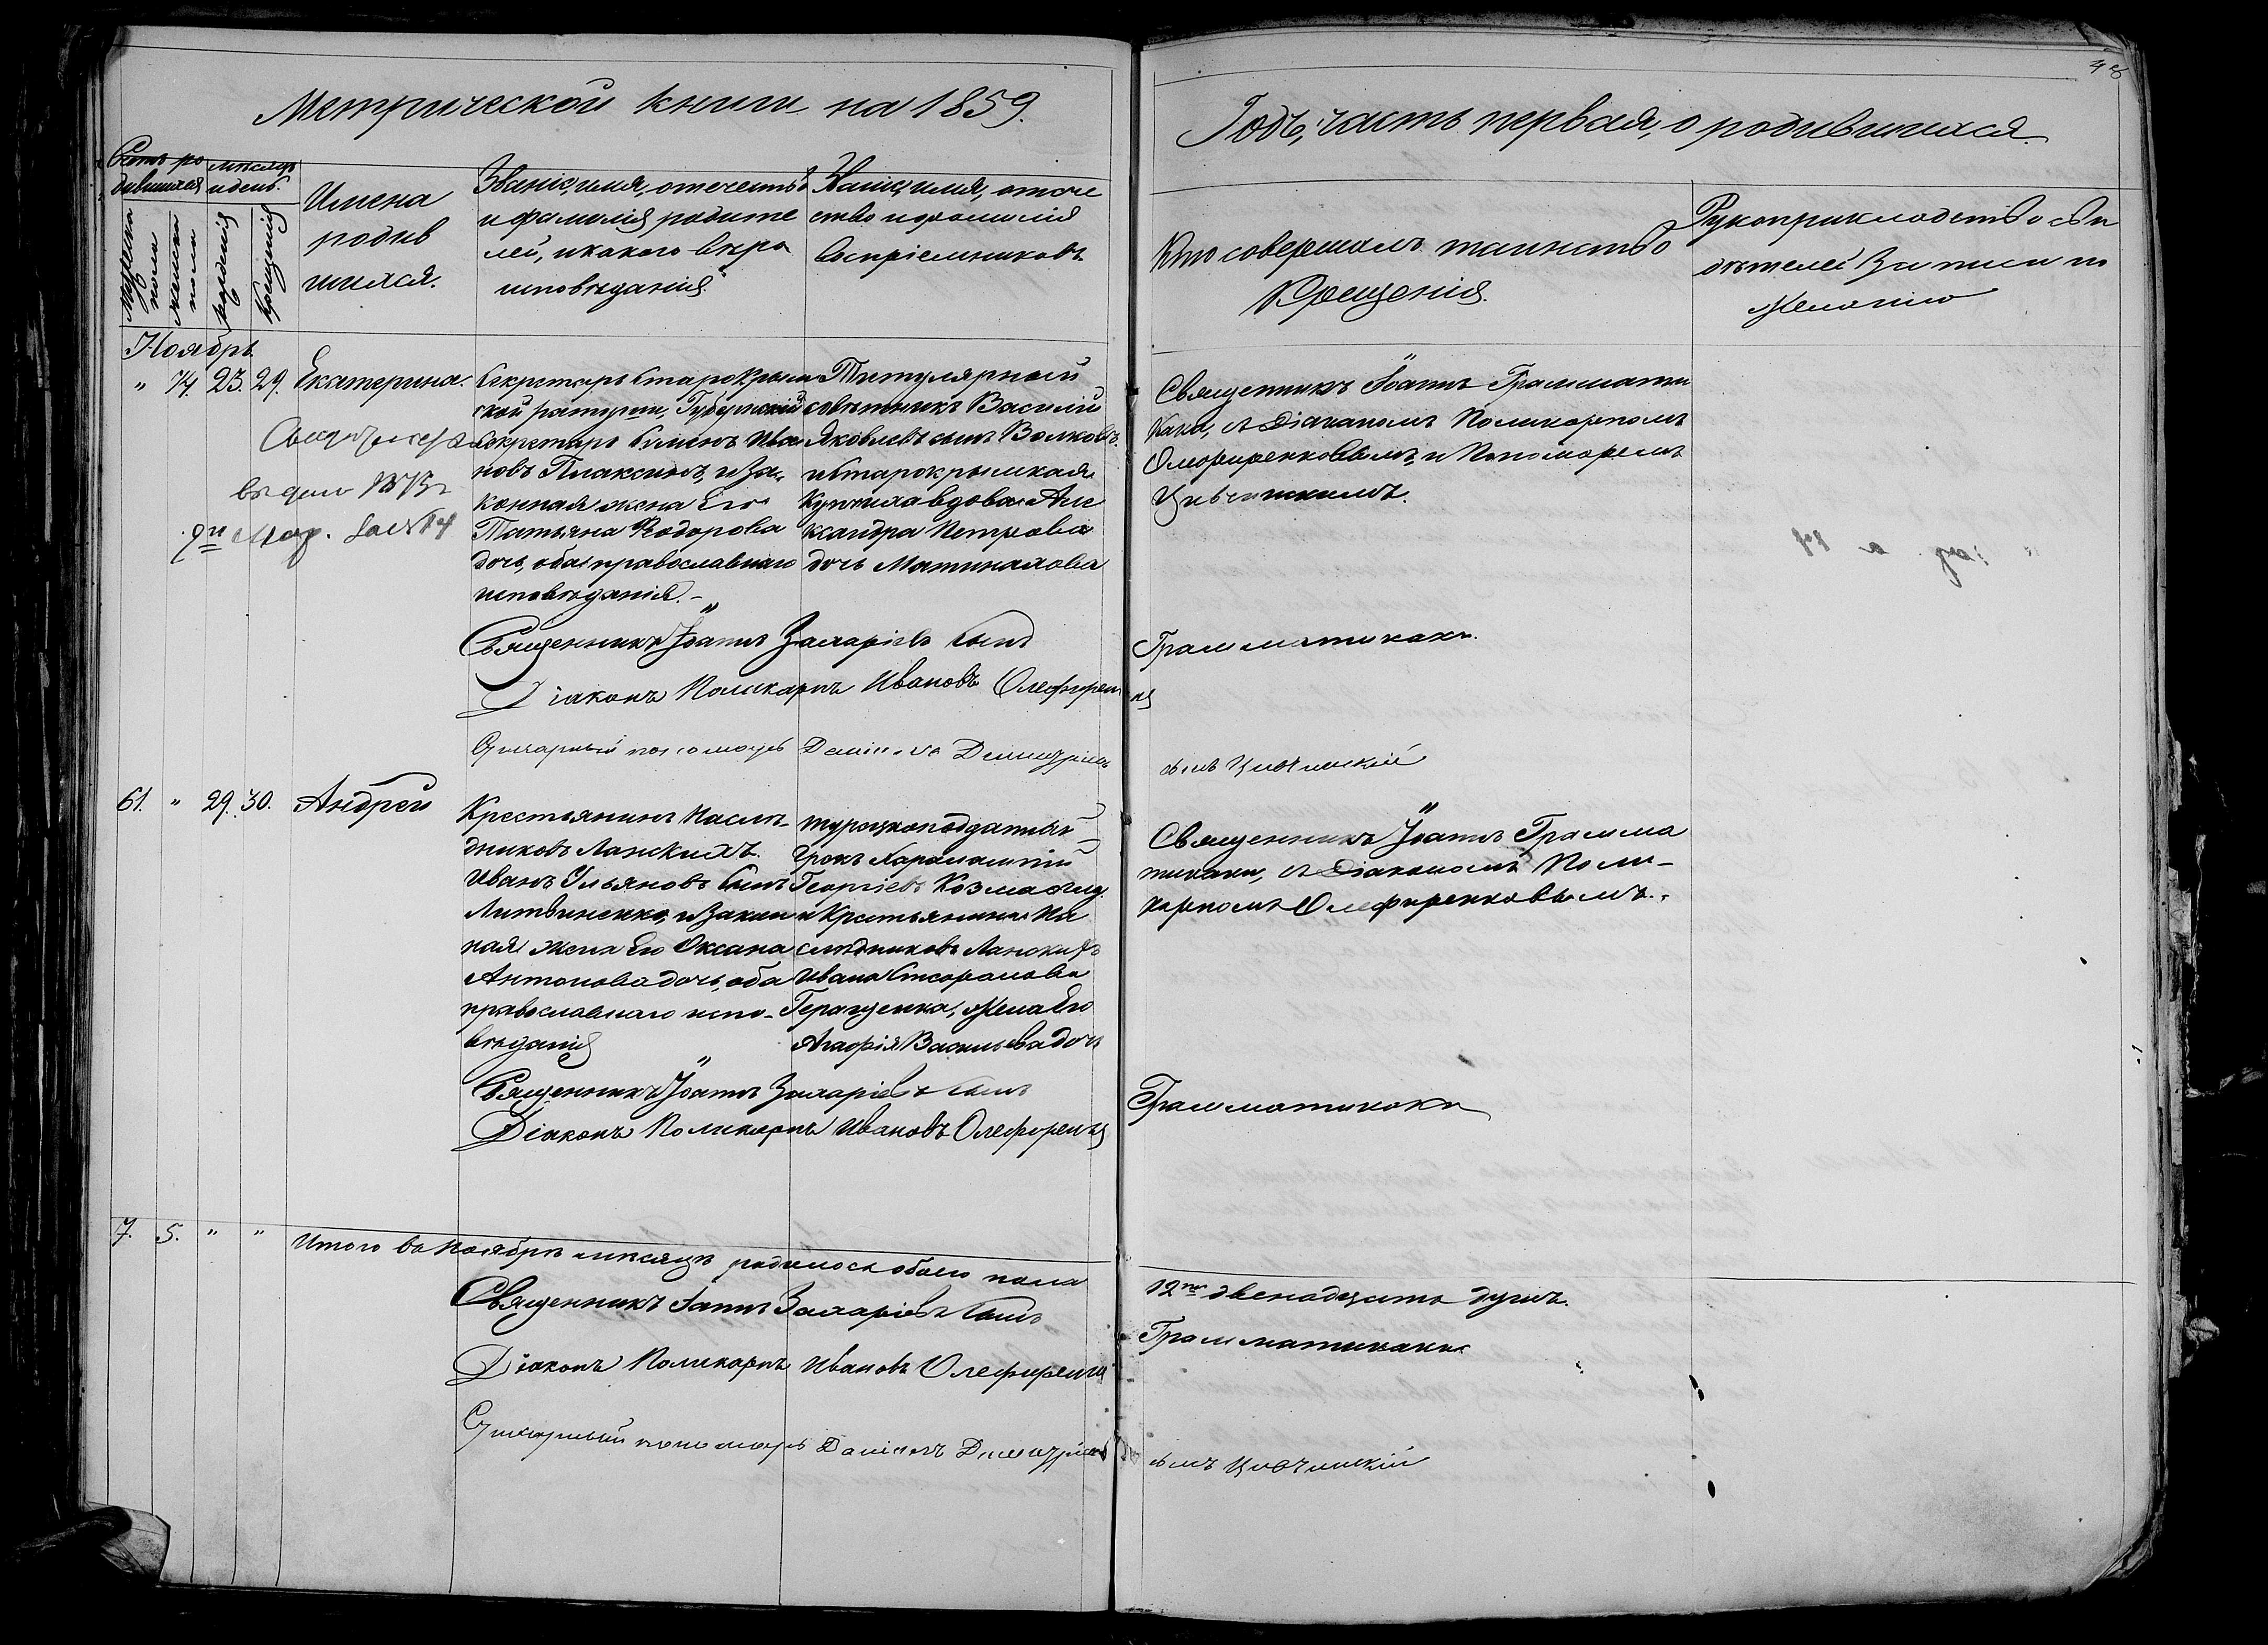 48
Метрической книги на 1859.
Годъ, часть первая, о родившихся.
Счетъ ро
дившихся
мѣсяцъ
и день.
Мужеска
пола
женска
пола
рожденія
Крещенія
Имена
родив
шихся.
Званіе, имя, отечество
и фамилія родите
лей, и какого вѣро
исповѣданія.
Званіе, имя, отече
ство и фамилія
воспріемниковъ
Кто совершалъ таинство
Крещенія.
Рукоприкладство сви
дѣтелей записи по
Желанію
Ноябрь.
" 74. 23. 29. Екатерина.
выдано
Секретарь Старокрым
ской ратуши, Губернскій
Секретарь Ива
новъ Плаксинъ, и за
конная жена Его
Татьяна Ѳедорова
дочь, оба православнаго
исповѣданія.-
Титулярный
совѣтникъ Василій
Яковлевъ сынъ Волковъ.
и Старокрымская
Купчиха вдова Але
ксандра Петрова
дочь
Священникъ Іоаннъ Граммати
каки, съ Діакономъ Поликарпомъ
Олефиренковымъ, и Пономаремъ
Священникъ Іоаннъ Захаріевъ сынъ Грамматикаки.
Діаконъ Поликарпъ Ивановъ Олефиренко
пономарь Даніилъ Димитріевъ
сынъ
61. " 29. 30. Андрей
Крестьянинъ Наслѣ-
дниковъ Ланскихъ
Иванъ Ульяновъ сынъ
Литвиненко, и Закон
ная жена Его Оксана
Антонова дочь, оба
православнаго испо-
вѣданія
турецкоподданный
Грекъ Харалампій
Георгіевъ
и Крестьянина На
слѣдниковъ Ланскихъ
Ивана
Геращенка, Жена Его
Агафія Васильева дочь
Священникъ Іоаннъ Грамма
тикаки, съ Діакономъ Поли-
карпомъ Олефиренковымъ.
Священникъ Іоаннъ Захаріевъ сынъ Грамматикаки
Діаконъ Поликарпъ Ивановъ Олефиренко
7. 5. " " Итого въ Ноябрѣ мѣсяцѣ родилось обоего пола 12ть двенадцать душъ.
Священникъ Іоаннъ Захаріевъ сынъ Грамматикаки
Діаконъ Поликарпъ Ивановъ Олефиренко
пономарь Даніилъ Димитріевъ
сынъ